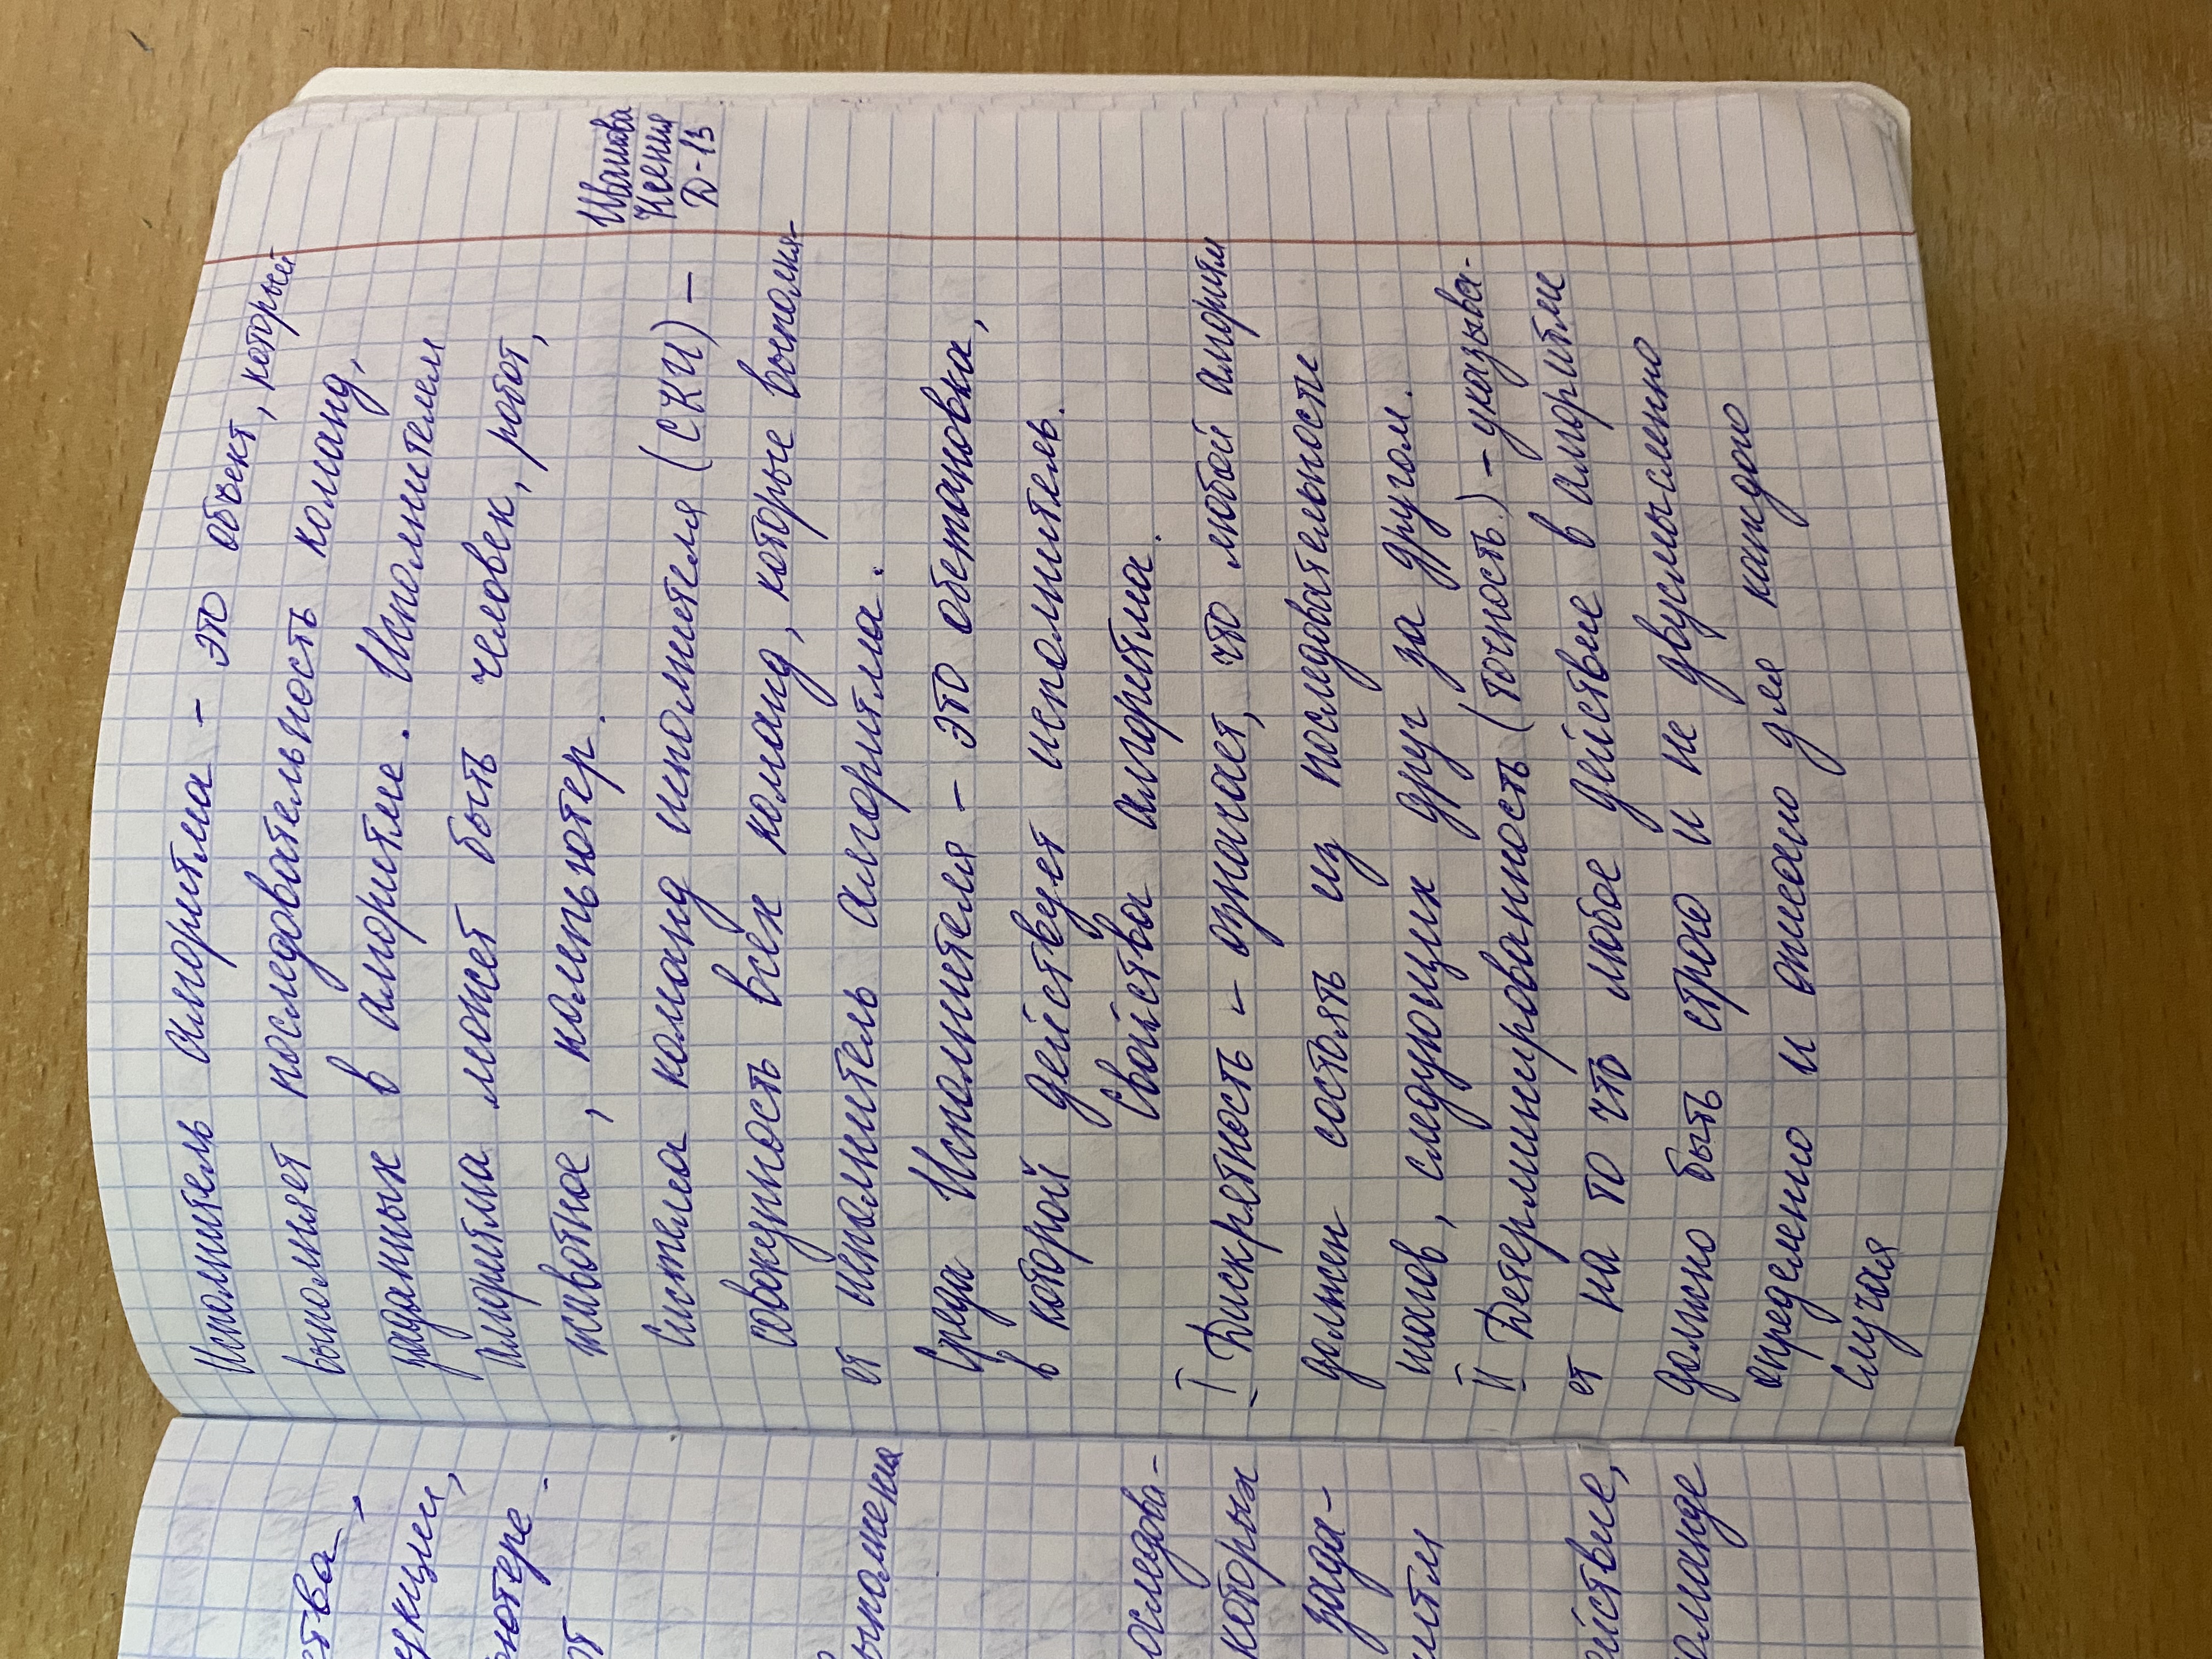 Исполнитель алгоритма - это объект, который
выполняет последовательность команд,
заданных в алгоритме. Исполнителем
алгоритма может быть человек, робот,
животное, компьютер.
Система команд исполнителя (СКИ) -
совокупность всех команд, которые выполня-
ет исполнитель алгоритма.
Среда Исполнителя - это обстановка,
в которой действует исполнитель.
Свойства алгоритма.
I Дискретность - означает, что любой алгоритм
должен состоять из последовательности
шагов, следующих друг за другом.
II Детерминированность (точность) - указыва-
ет на то что любое действие в алгоритме
должно быть строго и не двусмысленно
определено и описано для каждого
случая
Иванова
Ксения
Д-13
ства -
укции,
ютере.
ыполнения
оследова-
которых
зада-
итм
ействие,
оманде